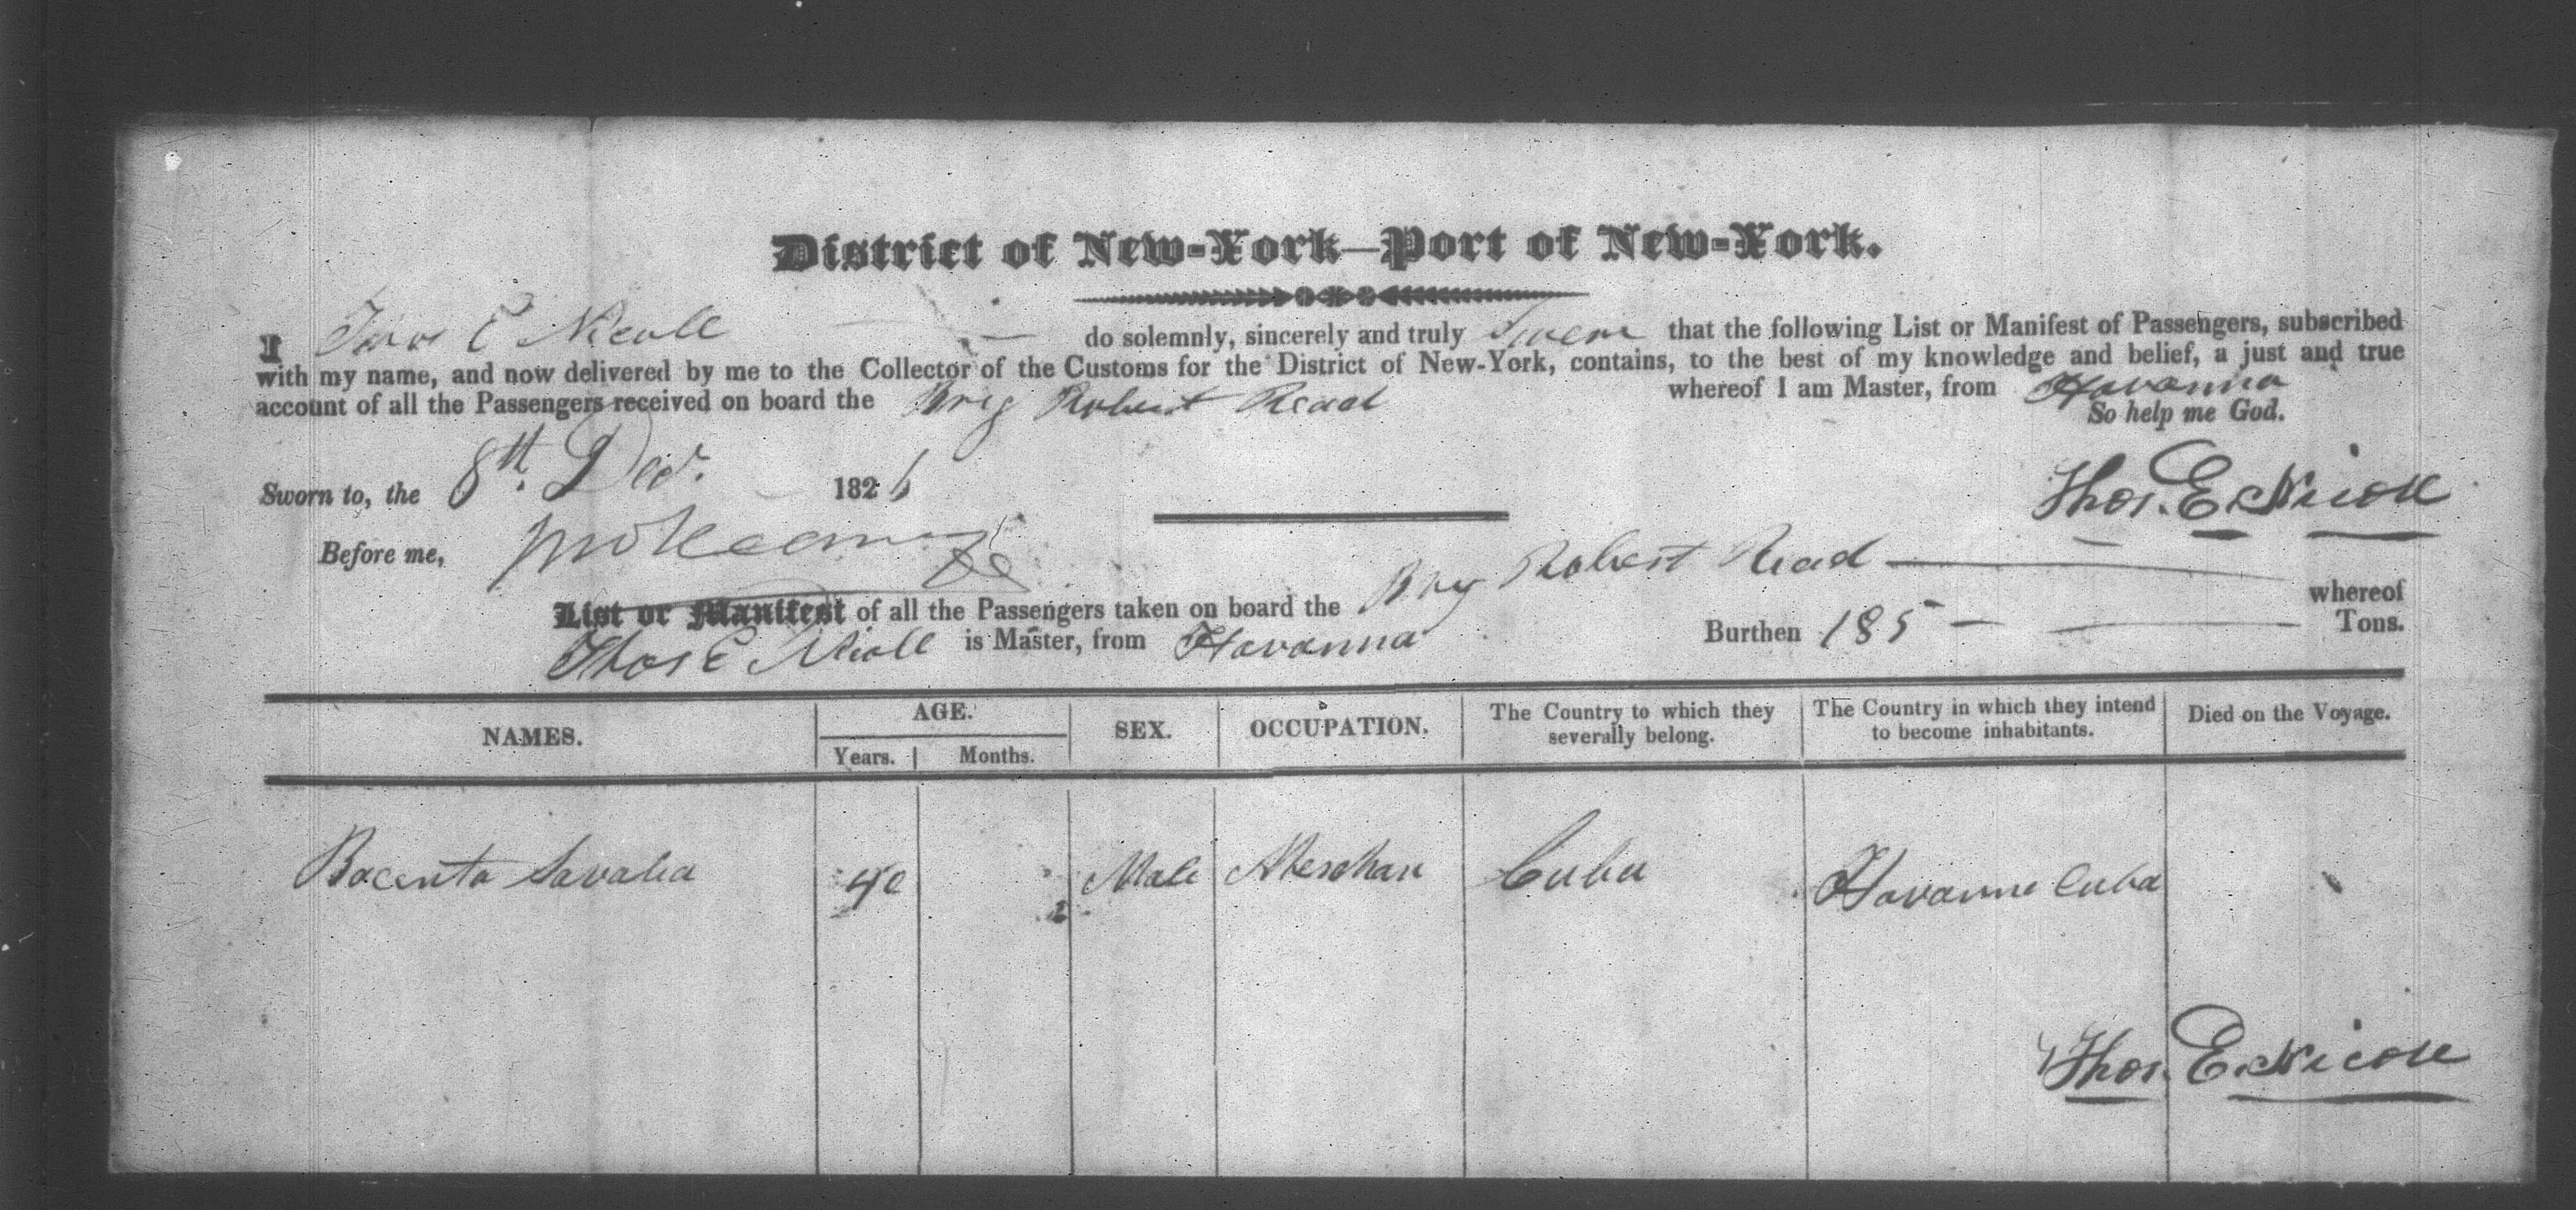 District of New-York—Port of New-York.
I Thos E Nicoll do solemnly, sincerely and truly Swear that the following List or Manifest of Passengers, subscribed
with my name, and now delivered by me to the Collector of the Customs for the District of New-York, contains, to the best of my knowledge and belief, a just and true
account of all the Passengers received on board the Brig Robert Read whereof I am Master, from Havanna
So help me God.
Sworn to, the 8th. Dec. 1826
Thos. E. Nicoll
Before me,
List or Manifest of all the Passengers taken on board the Brig Robert Read whereof
Thos E Nicoll is Master, from Havanna Burthen 185 Tons.
NAMES. AGE. Years. Months. SEX. OCCUPATION. The Country to which they severally belong. The Country in which they intend to become inhabitants. Died on the Voyage.
Bacenta Savalea 40 Male Merchan Cuba Havanna Cuba
Thos. E. Nicoll